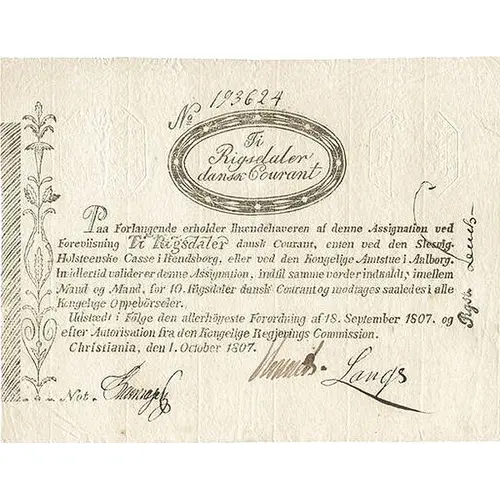 No 193624
Ti
Rigsdaler
dansk Courant
Paa Forlangende erholder Ihændehaveren af denne Assignation ved
Foreviisning Ti Rigsdaler dansk Courant, enten ved den Slesvig-
Holsteenske Casse i Rendsborg, eller ved den Kongelige Amtstue i Aalborg.
Imidlertid validerer denne Assignation, indtil samme vorder indkaldt, imellem
Mand og Mand, for 10. Rigsdaler dansk Courant og modtages saaledes i alle
Kongelige Oppebörseler.
Udstedt i Følge den allerhögeste Forordning af 18. September 1807. og
efter Autorisation fra den Kongelige Regjerings Commission.
Christiania, den 1. October 1807.
Not.
Lange